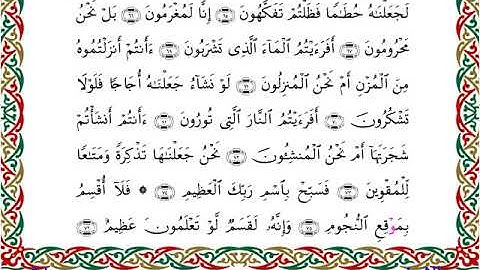 لَجَعَلْنَٰهُ حُطَٰمًا فَظَلْتُمْ تَفَكَّهُونَ ٦٥ إِنَّا لَمُغْرَمُونَ ٦٦ بَلْ نَحْنُ
مَحْرُومُونَ ٦٧ أَفَرَءَيْتُمُ الْمَآءَ الَّذِى تَشْرَبُونَ ٦٨ ءَأَنتُمْ أَنزَلْتُمُوهُ
مِنَ الْمُزْنِ أَمْ نَحْنُ الْمُنزِلُونَ ٦٩ لَوْ نَشَآءُ جَعَلْنَٰهُ أُجَاجًا فَلَوْلَا
تَشْكُرُونَ ٧٠ أَفَرَءَيْتُمُ النَّارَ الَّتِى تُورُونَ ٧١ ءَأَنتُمْ أَنشَأْتُمْ
شَجَرَتَهَآ أَمْ نَحْنُ الْمُنشِـُٔونَ ٧٢ نَحْنُ جَعَلْنَٰهَا تَذْكِرَةً وَمَتَٰعًا
لِّلْمُقْوِينَ ٧٣ فَسَبِّحْ بِاسْمِ رَبِّكَ الْعَظِيمِ ٧٤ ۞ فَلَآ أُقْسِمُ
بِمَوَٰقِعِ النُّجُومِ ٧٥ وَإِنَّهُۥ لَقَسَمٌ لَّوْ تَعْلَمُونَ عَظِيمٌ ٧٦